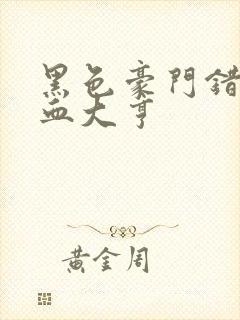 黑色豪門錯
血大亨
黃金周